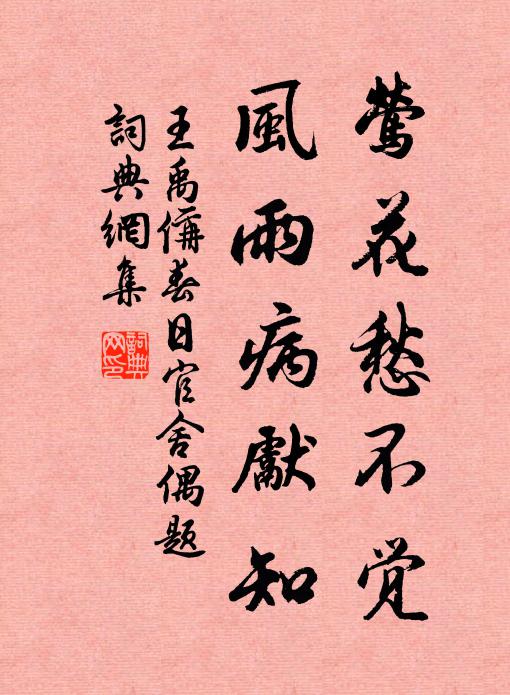 莺花愁不觉
風雨病獻知
王禹偁春日官舍偶题
詞典網集
詞典网印